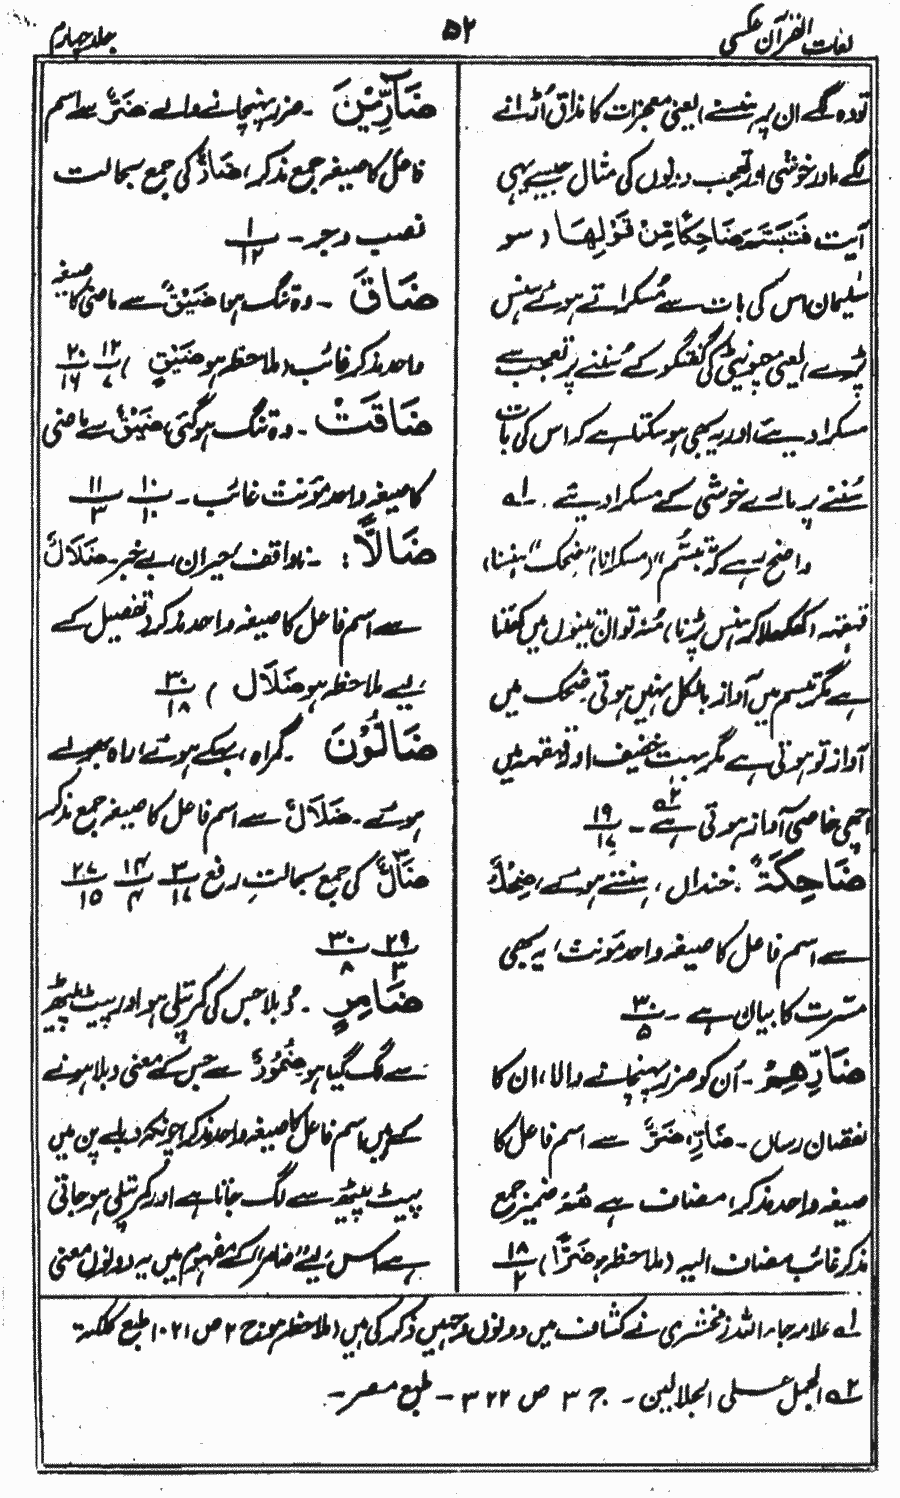 لغات القرآن عکسی
۵۲
جلد چہارم
تو وہ لگے ان پر ہنسنے، یعنی معجزات کا مذاق اُڑانے
لگے، اور خوشی اور تعجب دونوں کی مثال جیسے یہی
آیت فَتَبَسَّمَ ضَاحِكًا مِّنْ قَوْلِهَا (سو
سلیمان اس کی بات سے مُسکراتے ہوئے ہنس
پڑے، یعنی چیونٹی کی گفتگو کے سُننے پر تعجب سے
مسکرا دیئے، اور یہ بھی ہو سکتا ہے کہ اس کی بات
سُننے پر مارے خوشی کے مسکرا دیئے۔ ۱ے
واضح رہے کہ تبسّم (مسکرانا) ضحک (ہنسنا)
قہقہہ (کھکھلا کر ہنس پڑنا) مُنہ تو ان تینوں میں کھُلتا
ہے مگر تبسم میں آواز بالکل نہیں ہوتی، ضحک میں
آواز تو ہوتی ہے مگر بہت خفیف اور قہقہہ میں
اچھی خاصی آواز ہوتی ہے ۲ے ۔ ۱۹/۱۷
ضَاحِكَةٌ ۔ خنداں، ہنستے ہوئے، ضِحْكٌ
سے اسم فاعل کا صیغہ واحد مؤنث، یہ بھی
مسرّت کا بیان ہے ۔ ۳۰/۵
ضَارِّهِمْ ۔ اُن کو ضرر پہنچانے والا، ان کا
نقصان رساں ۔ ضَارِّ، ضَرٌّ سے اسم فاعل کا
صیغہ واحد مذکر، مضاف ہے هُمْ ضمیر جمع
مذکر غائب مضاف الیہ (ملاحظہ ہو ضَرًّا) ۱۸/۲
ضَارِّيْنَ ۔ ضرر پہنچانے والے ضَرٌّ سے اسم
فاعل کا صیغہ جمع مذکر، ضَارٌّ کی جمع بحالت
نصب و جر ۔ ۱/۱۲
ضَاقَ ۔ وہ تنگ ہوا ضَيْقٌ سے ماضی کا صیغہ
واحد مذکر غائب (ملاحظہ ہو ضَيْقٍ) ۱۲/۷ ۲۰/۱۶
ضَاقَتْ ۔ وہ تنگ ہوگئی، ضَيْقٌ سے ماضی
کا صیغہ واحد مؤنث غائب ۔ ۱۰/۱۰ ۱۱/۳
ضَالًّا : ۔ ناواقف، حیران، بے خبر ۔ ضَلَالٌ
سے اسم فاعل کا صیغہ واحد مذکر (تفصیل کے
لیے ملاحظہ ہو ضَلَال) ۳۰/۱۸
ضَالُّوْنَ ۔ گمراہ، بہکے ہوئے، راہ بھولے
ہوئے ۔ ضَلَالٌ سے اسم فاعل کا صیغہ جمع مذکر
ضَالٌّ کی جمع بحالتِ رفع ۳/۱۷ ۱۴/۴ ۲۷/۱۵
۲۹/۳ ۳۰/۸
ضَامِرٍ ۔ دُبلا جس کی کمر پتلی ہو اور پیٹ پیٹھ
سے لگ گیا ہو ضُمُوْرٌ سے جس کے معنی دبلا ہونے
کے ہیں اسم فاعل کا صیغہ واحد مذکر، چونکہ دبلے پن میں
پیٹ پیٹھ سے لگ جاتا ہے اور کمر پتلی ہو جاتی
ہے اس لیے ضامر کے مفہوم میں یہ دونوں معنی
۱ے علامہ جار اللہ زمخشری نے کشاف میں دونوں وجہیں ذکر کی ہیں (ملاحظہ ہو ج ۲ ص ۱۰۲۱ طبع کلکتہ
۲ے الجمل علی الجلالین ۔ ج ۳ ص ۳۲۲ ۔ طبع مصر ۔